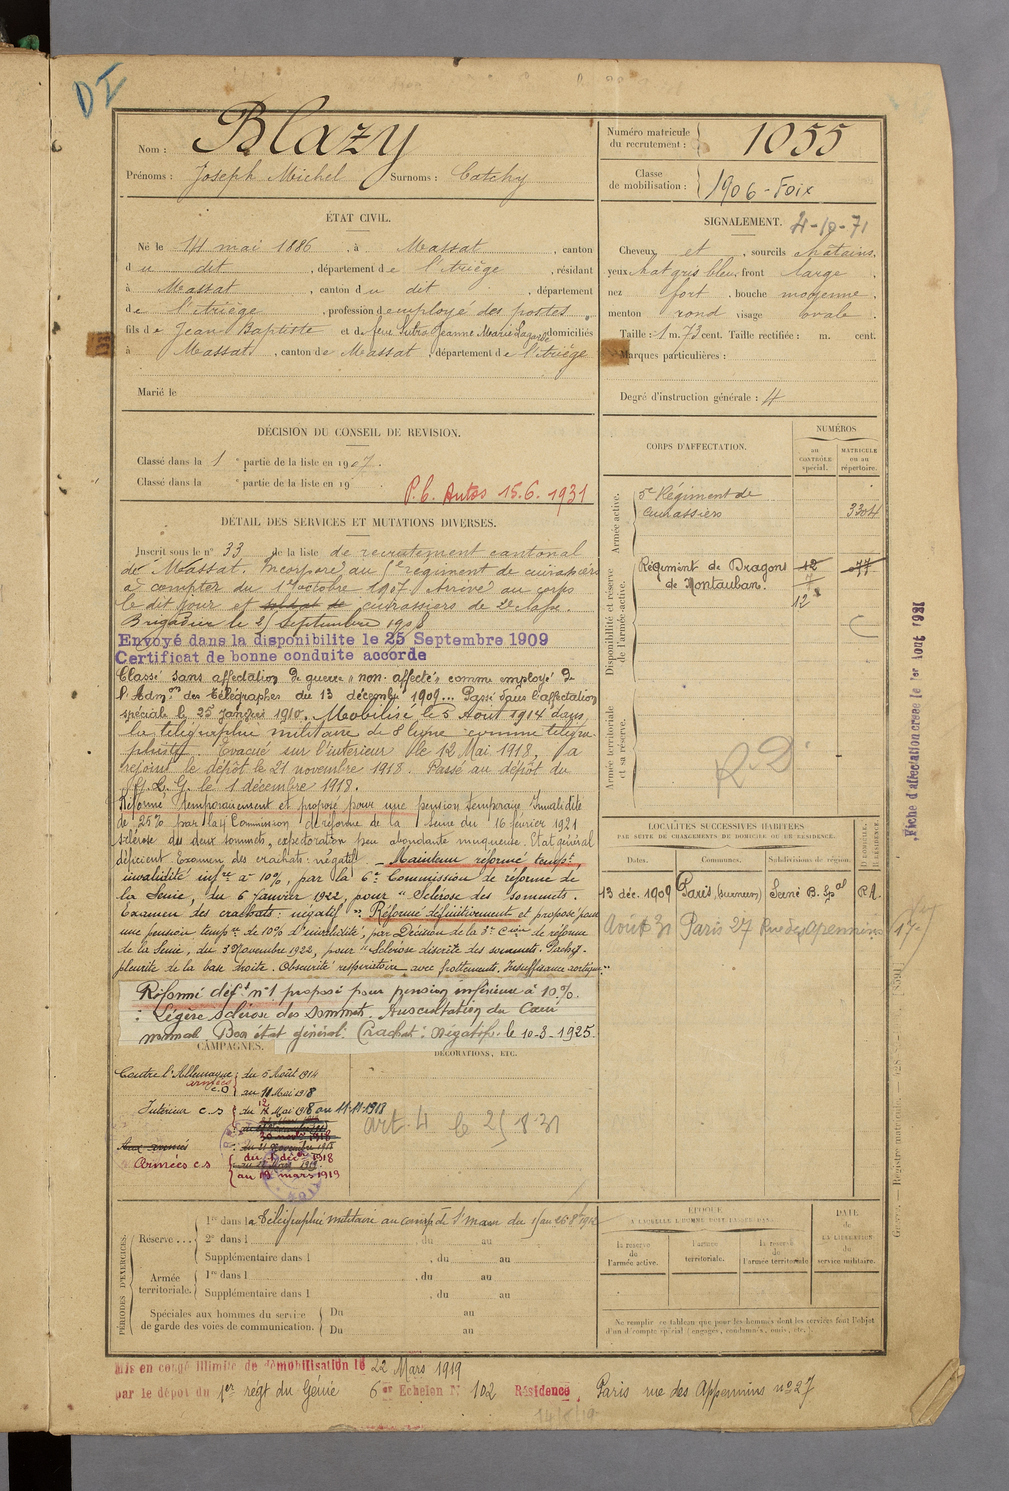 DI
Nom : Blazy
Prénoms : Joseph Michel Surnoms : Catchy
Numéro matricule du recrutement : 1055
Classe de mobilisation : 1906 - Foix
ÉTAT CIVIL.
Né le 14 mai 1886, à Massat, canton
du dit, département de l'Ariège, résidant
à Massat, canton du dit, département
de l'Ariège, profession d'employé des postes
fils de Jean Baptiste et de feue Jeanne Marie Lagarde domiciliés
à Massat, canton de Massat, département de l'Ariège
Marié le
SIGNALEMENT. 4-10-71
Cheveux et, sourcils chatains,
yeux chat gris bleu, front large,
nez fort, bouche moyenne,
menton rond visage ovale.
Taille : 1 m. 73 cent. Taille rectifiée : m. cent.
Marques particulières :
Degré d'instruction générale : 4
DÉCISION DU CONSEIL DE REVISION.
Classé dans la 1e partie de la liste en 1907.
Classé dans la e partie de la liste en 19
P.C. Autos 15.6.1931
CORPS D'AFFECTATION.
NUMÉROS
au CONTRÔLE spécial.
MATRICULE ou au répertoire.
Armée active.
5e Régiment de
Cuirassiers 3304
Disponibilité et réserve de l'armée active.
Régiment de Dragons 12 77
de Montauban. 7
12
Armée territoriale et sa réserve.
R.D.
Fiche d'affectation créée le 1er Aout 1931
DÉTAIL DES SERVICES ET MUTATIONS DIVERSES.
Inscrit sous le n° 33 de la liste de recrutement cantonal
de Massat. Incorporé au 5e régiment de cuirassiers
à compter du 1er octobre 1907. Arrivé au corps
le dit jour et soldat de cuirassiers de 2e classe.
Brigadier le 25 Septembre 1908
Envoyé dans la disponibilite le 25 Septembre 1909
Certificat de bonne conduite accorde
Classé sans affectation de guerre "non-affecté" comme employé de
l'Admon des Télégraphes du 13 décembre 1909... Passé dans l'affectation
spéciale le 25 janvier 1910. Mobilisé le 5 Août 1914 dans
la télégraphie militaire de 2e ligne comme télégra-
phiste. Évacué sur l'intérieur le 12 Mai 1918, a
rejoint le dépôt le 21 novembre 1918. Passé au dépôt du
le 1 décembre 1918.
Réformé temporairement et proposé pour une pension temporaire Invalidité
de 25% par la 4e Commission de réforme de la Seine du 16 février 1921
sclérose des deux sommets, expectoration peu abondante muqueuse. Etat général
déficient. Examen des crachats : négatif. — Maintenu réformé tempre
invalidité infre à 10%, par la 6e Commission de réforme de
la Seine, du 6 Janvier 1922, pour "Sclérose des sommets.
Examen des crachats : négatif". Réformé définitivement et proposé pour
une pension tempre de 10% d'invalidité, par Décision de la 3e Cion de réforme
de la Seine, du 3 Novembre 1922, pour "Sclérose discrète des sommets. Pachy-
pleurite de la base droite. Obscurité respiratoire avec frottements. Insuffisance aortique."
Réformé déft n°1 proposé pour pension inférieure à 10%.
: Légère sclérose des sommets. Auscultation du Cœur
normal Bon état général. Crachat : négatifs. le 10-3-1925.
LOCALITÉS SUCCESSIVES HABITÉES
PAR SUITE DE CHANGEMENTS DE DOMICILE OU DE RÉSIDENCE.
Dates. Communes. Subdivisions de région. D DOMICILE. R RÉSIDENCE.
13 déc. 1909 Paris Seine B. Cal R.
Août 31 Paris 27 Rue des Apennins 17e
CAMPAGNES.
Contre l'Allemagne : du 5 Août 1914
armées c.D au 11 Mai 1918
Intérieur c.s du 12 Mai 1918 au 11-11-1918
30 nov 1918
Aux armées : du 21 novembre 1918
Armées c.s du 1 déc 1918
au 12 mars 1919
DÉCORATIONS, ETC.
art. 4 le 25 8 31
PÉRIODES D'EXERCICES.
Réserve . . . 1re dans la Télégraphie militaire au camp de du au
2e dans l , du au
Supplémentaire dans l , du au
Armée territoriale. 1re dans l , du au
Supplémentaire dans l , du au
Spéciales aux hommes du service de garde des voies de communication. Du au
Du au
ÉPOQUE
À LAQUELLE L'HOMME DOIT PASSER DANS
la réserve de l'armée active.
l'armée territoriale.
la réserve de l'armée territoriale
DATE de LA LIBÉRATION du service militaire.
Ne remplir ce tableau que pour les hommes dont les services font l'objet
d'un décompte spécial (engagés, condamnés, omis, etc.).
Mis en congé illimité de démobilisation le 22 Mars 1919
par le dépôt du 1er régt du Génie 6e Echelon N° 102 Résidence Paris rue des Appennins n° 27